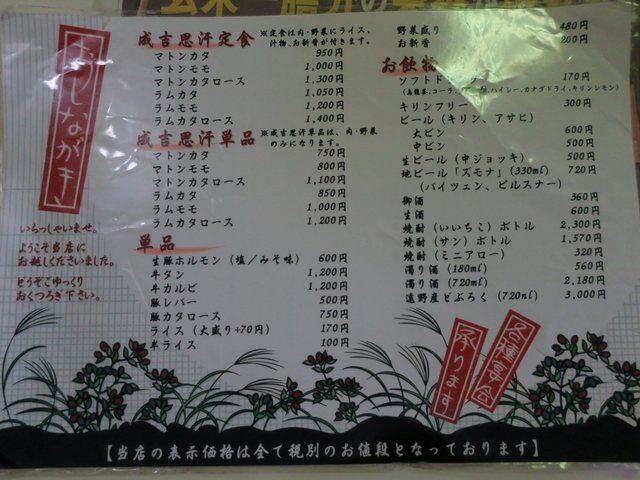 おしながき
いらっしゃいませ。
ようこそ当店に
お越しくださいました。
どうぞごゆっくり
おくつろぎ下さい。
成吉思汗定食 ※定食は肉・野菜にライス、
汁物、お新香が付きます。
マトンカタ 950円
マトンモモ 1,000円
マトンカタロース 1,300円
ラムカタ 1,050円
ラムモモ 1,200円
ラムカタロース 1,400円
成吉思汗単品 ※成吉思汗単品は、肉・野菜
のみになります。
マトンカタ 750円
マトンモモ 800円
マトンカタロース 1,100円
ラムカタ 850円
ラムモモ 1,000円
ラムカタロース 1,200円
単品
生豚ホルモン (塩/みそ味) 600円
牛タン 1,200円
牛カルビ 1,200円
豚レバー 500円
豚カタロース 750円
ライス (大盛り+70円) 170円
半ライス 100円
野菜盛り 480円
お新香 200円
お飲物
ソフトドリンク 170円
キリンフリー 300円
ビール (キリン、アサヒ)
大ビン 600円
中ビン 500円
生ビール (中ジョッキ) 500円
地ビール「ズモナ」(330ml) 720円
(バイツェン、ピルスナー)
御酒 360円
生酒 600円
焼酎 (いいちこ) ボトル 2,300円
焼酎 (サン) ボトル 1,570円
焼酎 (ミニアロー) 320円
濁り酒 (180ml) 560円
濁り酒 (720ml) 2,180円
遠野産どぶろく (720ml) 3,000円
各種宴会
承ります
【当店の表示価格は全て税別のお値段となっております】